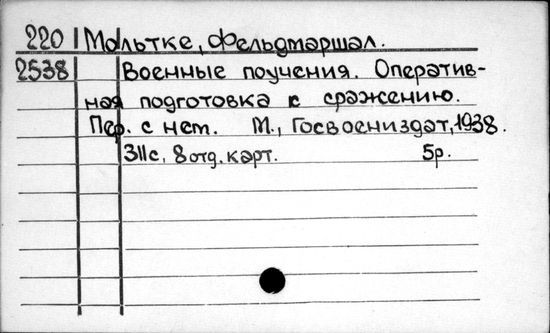 220 Мольтке, Фельдмаршал.
2538 Военные поучения. Оператив-
ная подготовка к сражению.
Пер. с нем. М., Госвоениздат, 1938.
311с, 8 отд. карт. 5р.